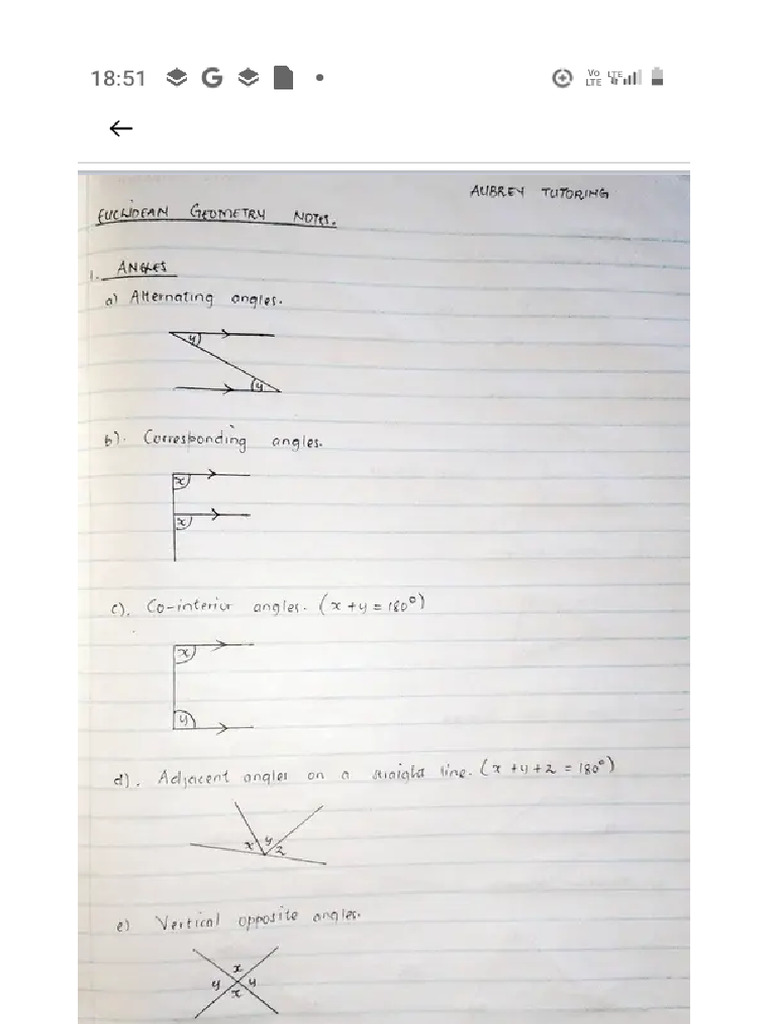 18:51
G
Vo
LTE
LTE
AUBREY TUTORING
EUCLIDEAN GEOMETRY NOTES.
1. ANGLES
a) Alternating angles.
y
y
b). Corresponding angles.
x
x
c). Co-interior angles. (x + y = 180°)
x
y
d). Adjacent angles on a straight line. (x + y + z = 180°)
x y z
e) Vertical opposite angles.
x
y y
x